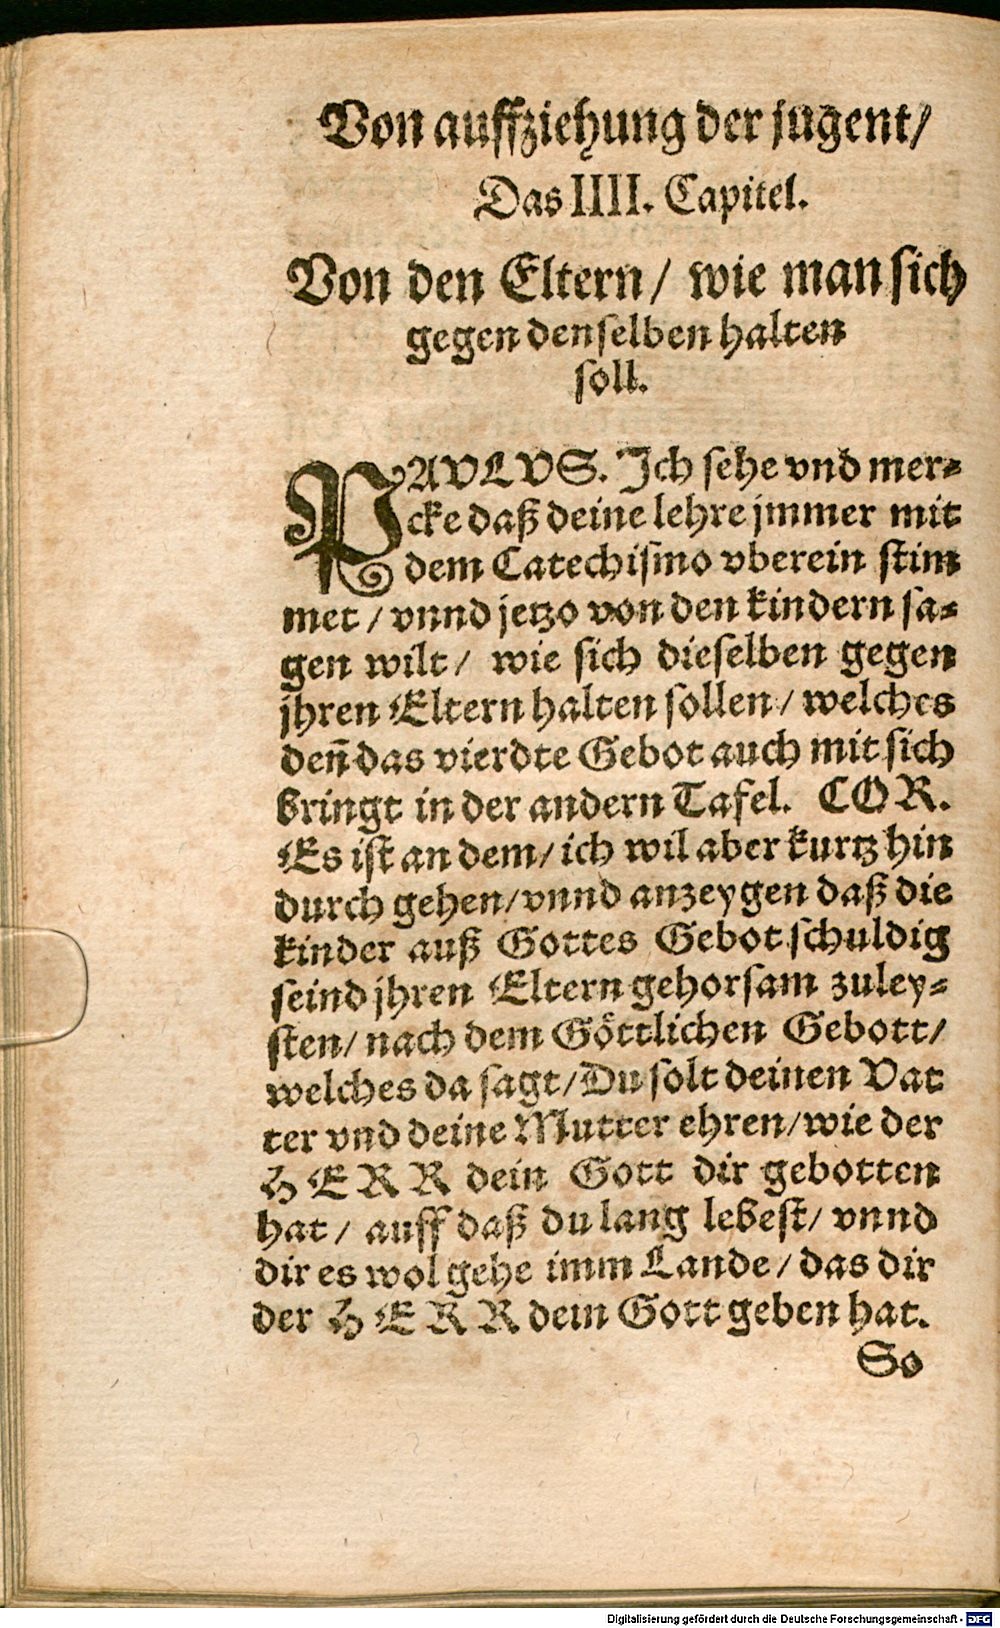 Von auffziehung der jugent/
Das IIII. Capitel.
Von den Eltern/ wie man sich
gegen denselben halten
soll.
PAVLVS. Ich sehe vnd mer⸗
cke daß deine lehre jmmer mit
dem Catechismo vberein stim
met / vnnd jetzo von den kindern sa⸗
gen wilt/ wie sich dieselben gegen
jhren Eltern halten sollen/ welches
deñ das vierdte Gebot auch mit sich
bringt in der andern Tafel. COR.
Es ist an dem/ ich wil aber kurtz hin
durch gehen/ vnnd anzeygen daß die
kinder auß Gottes Gebot schuldig
seind jhren Eltern gehorsam zuley⸗
sten/ nach dem Göttlichen Gebott/
welches da sagt/ Du solt deinen Vat
ter vnd deine Mutter ehren/ wie der
HERR dein Gott dir gebotten
hat/ auff daß du lang lebest/ vnnd
dir es wol gehe imm Lande/ das dir
der HERR dein Gott geben hat.
So
Digitalisierung gefördert durch die Deutsche Forschungsgemeinschaft - DFG